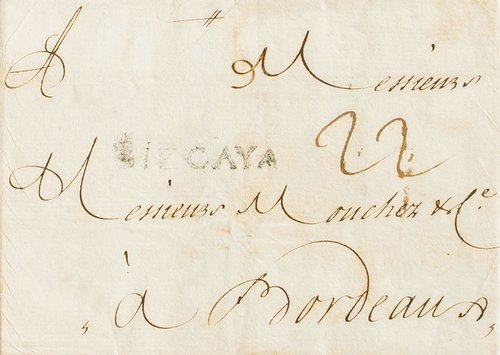 A Messieurs
BIZCAYA 22
Messieurs Mouchez & C.e
à Bordeaux